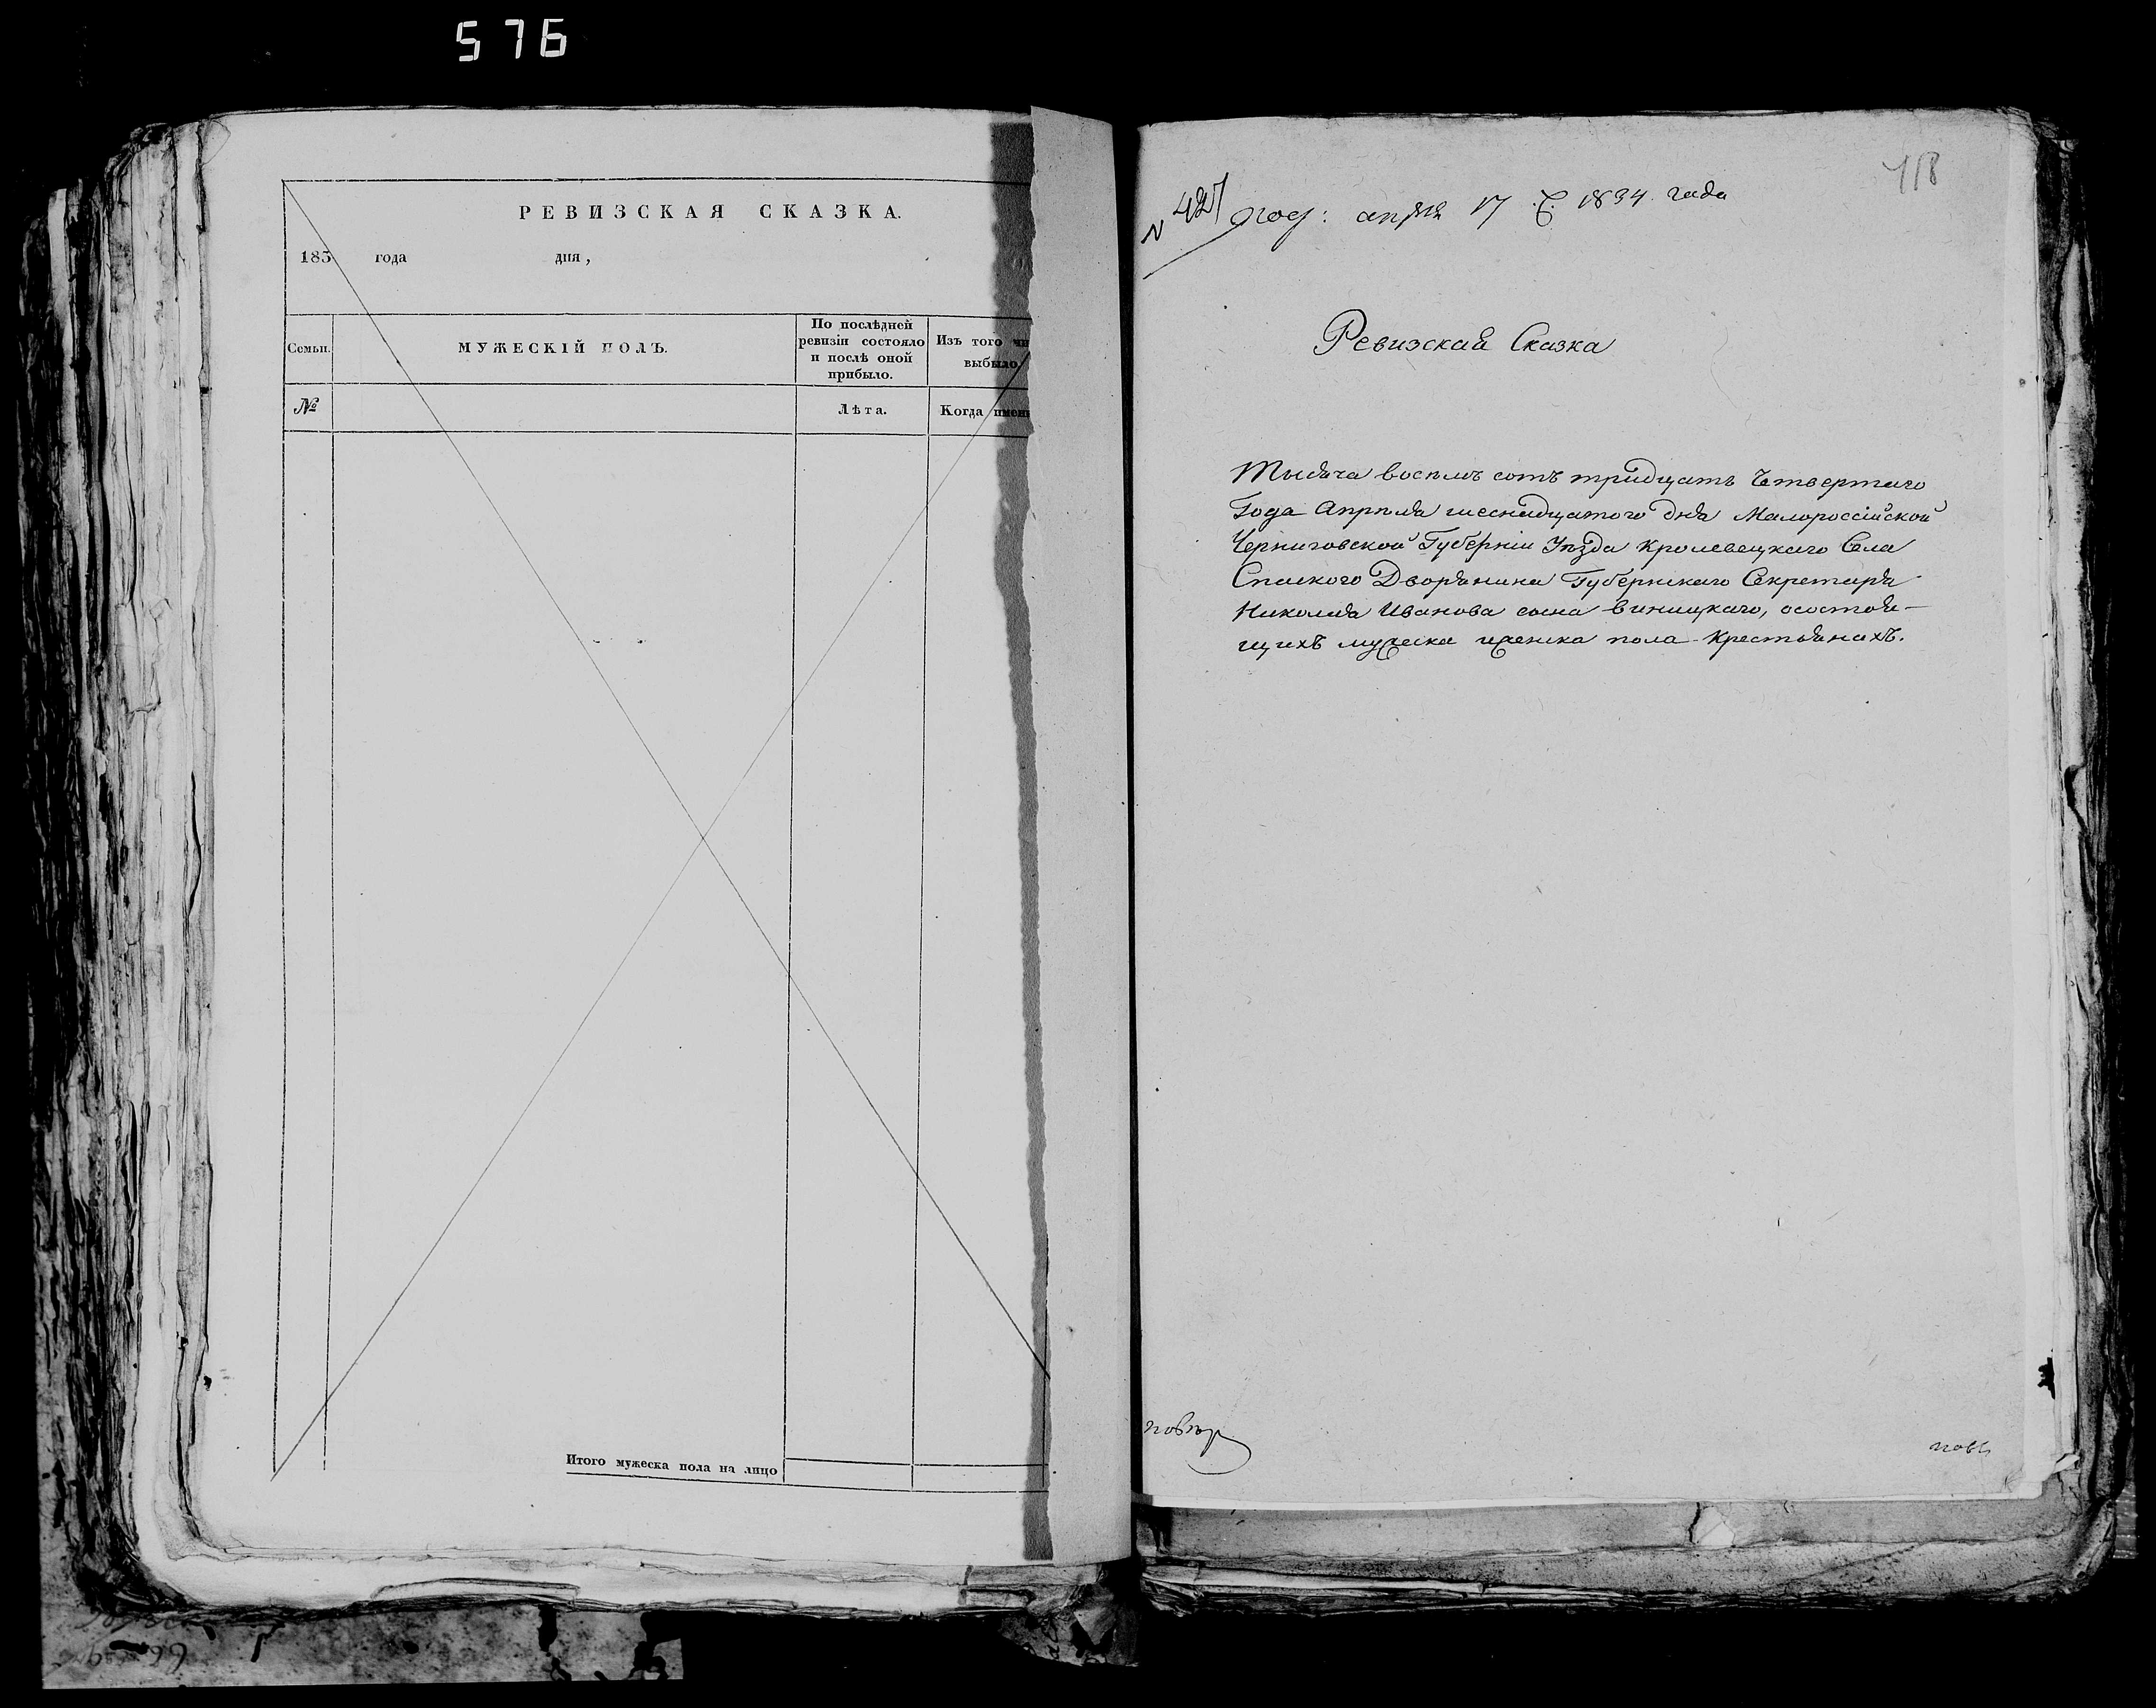 576
РЕВИЗСКАЯ СКАЗКА.
183 года дня,
Семьи.
МУЖЕСКІЙ ПОЛЪ.
По послѣдней
ревизіи состояло
и послѣ оной
прибыло.
Изъ того чи
выбыло.
№
Лѣта.
Когда имен
Итого мужеска пола на лицо
718
№ 427
под: апреля 17 1834 года
Ревизская Сказка
Тысяча восемь сотъ тридцать Четвертаго
Года Апрѣля шеснадцатого дня Малороссійской
Черниговской Губерніи Уѣзда Кролевецкаго Села
Спаского Дворянина Губернскаго Секретаря
Николая Иванова сына виницкаго, осостоя-
щихъ мужеска ихенска пола Крестьянахъ.
повѣр